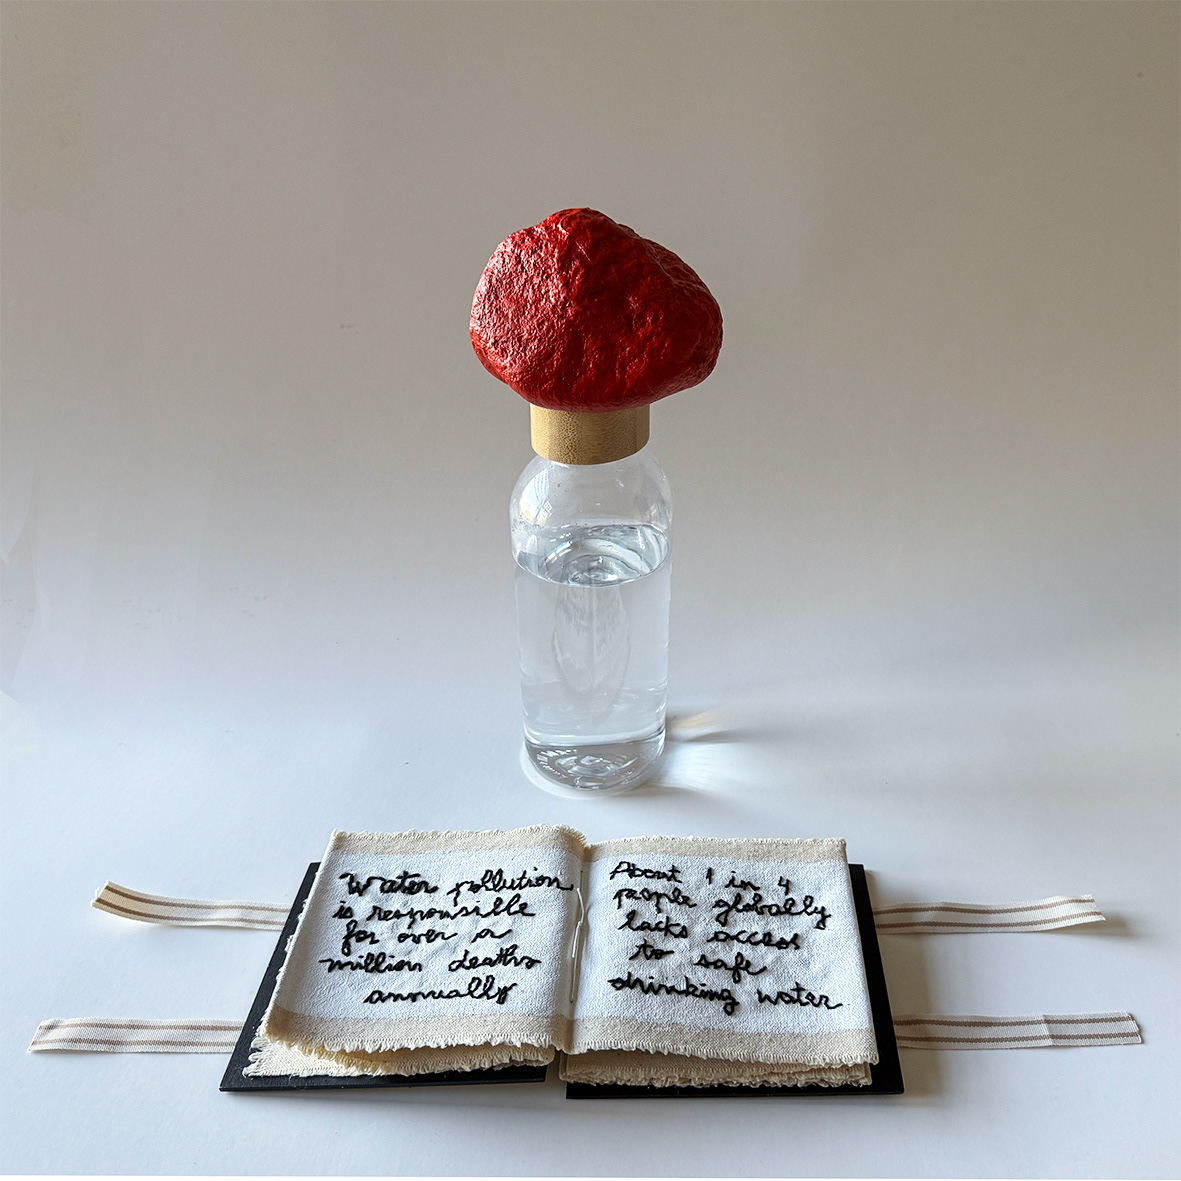 Water pollution
is responsible
for over a
million deaths
annually
About 1 in 4
people globally
lacks access
to safe
drinking water